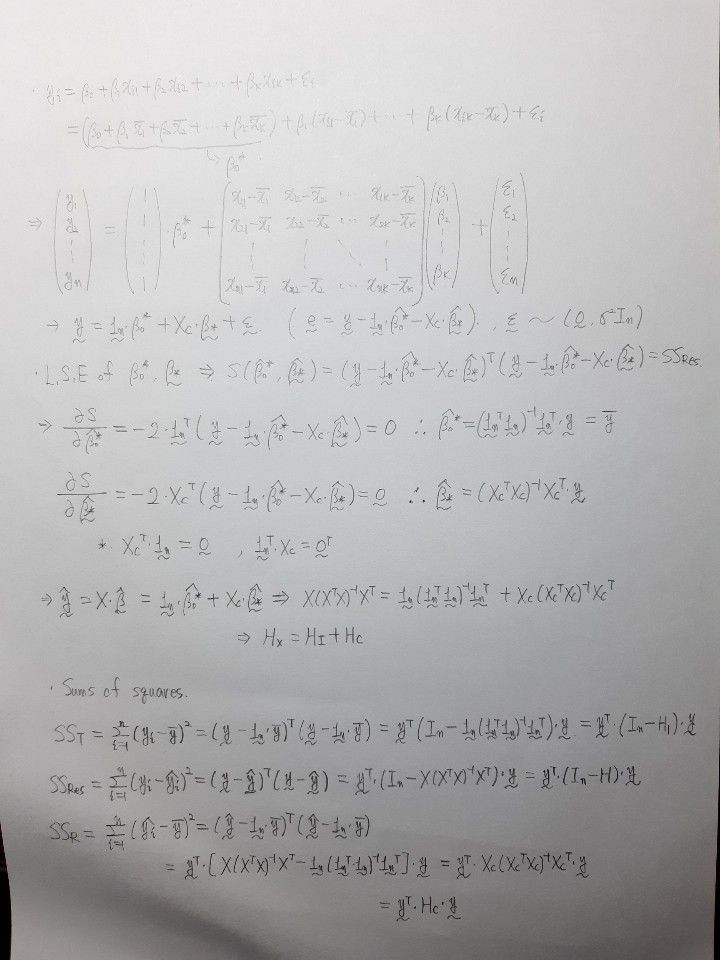 · yᵢ = β₀ + β₁xᵢ₁ + β₂xᵢ₂ + ··· + βₖxᵢₖ + εᵢ
= (β₀ + β₁x̄₁ + β₂x̄₂ + ··· + β₂x̄ₖ) + β₁(xᵢ₁ - x̄₁) + ··· + βₖ(xᵢₖ - x̄ₖ) + εᵢ
↳ β₀*
⇒ (y₁ y₂ ⋮ yₙ) = (1 1 ⋮ 1) · β₀* + (x₁₁-x̄₁ x₁₂-x̄₂ ··· x₁ₖ-x̄ₖ ; x₂₁-x̄₁ x₂₂-x̄₂ ··· x₂ₖ-x̄ₖ ; ⋮ ⋮ ⋱ ⋮ ; xₙ₁-x̄₁ xₙ₂-x̄₂ ··· xₙₖ-x̄ₖ)(β₁ β₂ ⋮ βₖ) + (ε₁ ε₂ ⋮ εₙ)
→ y = 1ₙ·β₀* + Xc·β* + ε. (e = y - 1ₙ·β̂₀* - Xc·β̂*). , ε ~ (0, σ²Iₙ)
· L.S.E of β₀*, β* ⇒ S(β̂₀*, β̂*) = (y - 1ₙ·β̂₀* - Xc·β̂*)ᵀ(y - 1ₙ·β̂₀* - Xc·β̂*) = SS_Res.
→ ∂S/∂β̂₀* = -2·1ₙᵀ(y - 1ₙ·β̂₀* - Xc·β̂*) = 0 ∴ β̂₀* = (1ₙᵀ1ₙ)⁻¹1ₙᵀ·y = ȳ
∂S/∂β̂* = -2·Xcᵀ(y - 1ₙ·β̂₀* - Xc·β̂*) = 0 ∴ β̂* = (XcᵀXc)⁻¹Xcᵀ·y
* Xcᵀ·1ₙ = 0 , 1ₙᵀ·Xc = 0ᵀ
⇒ ŷ = X·β̂ = 1ₙ·β̂₀* + Xc·β̂* ⇒ X(XᵀX)⁻¹Xᵀ = 1ₙ(1ₙᵀ1ₙ)⁻¹1ₙᵀ + Xc(XcᵀXc)⁻¹Xcᵀ
⇒ Hx = H_I + Hc
· Sums of squares.
SS_T = Σᵢ₌₁ⁿ(yᵢ - ȳ)² = (y - 1ₙ·ȳ)ᵀ(y - 1ₙ·ȳ) = yᵀ(Iₙ - 1ₙ(1ₙᵀ1ₙ)⁻¹1ₙᵀ)·y = yᵀ·(Iₙ - H₁)·y
SS_Res = Σᵢ₌₁ⁿ(yᵢ - ŷᵢ)² = (y - ŷ)ᵀ(y - ŷ) = yᵀ·(Iₙ - X(XᵀX)⁻¹Xᵀ)·y = yᵀ·(Iₙ - H)·y
SS_R = Σᵢ₌₁ⁿ(ŷᵢ - ȳ)² = (ŷ - 1ₙ·ȳ)ᵀ(ŷ - 1ₙ·ȳ)
= yᵀ·[X(XᵀX)⁻¹Xᵀ - 1ₙ(1ₙᵀ1ₙ)⁻¹1ₙᵀ]·y = yᵀ·Xc(XcᵀXc)⁻¹Xcᵀ·y
= yᵀ·Hc·y